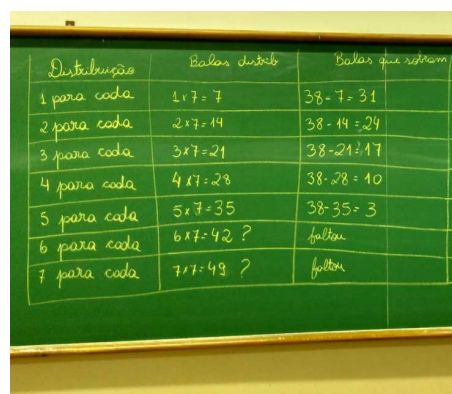 Distribuição Balas distrib Balas que sobram
1 para cada 1x7=7 38-7=31
2 para cada 2x7=14 38-14=24
3 para cada 3x7=21 38-21=17
4 para cada 4x7=28 38-28=10
5 para cada 5x7=35 38-35=3
6 para cada 6x7=42 ? faltou
7 para cada 7x7=49 ? faltou